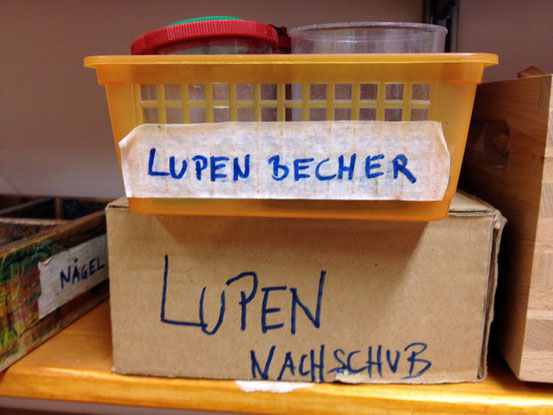 LUPEN BECHER
NÄGEL
LUPEN
NACHSCHUB